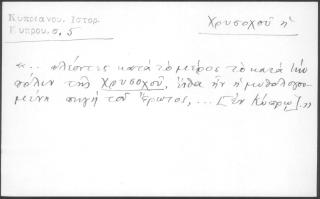 Κυπριανου. Ιστορ.
Κυπρου. σ. 5
Χρυσοχοῦ ἡ
«.. πλέοντες κατὰ τὸ μέρος τὸ κατὰ τὴν
πόλιν τῆς Χρυσοχοῦ, ἔνθα ἦν ἡ μυθολογου-
μένη πηγὴ τοῦ Ἔρωτος, ... [ἐν Κύπρῳ].»